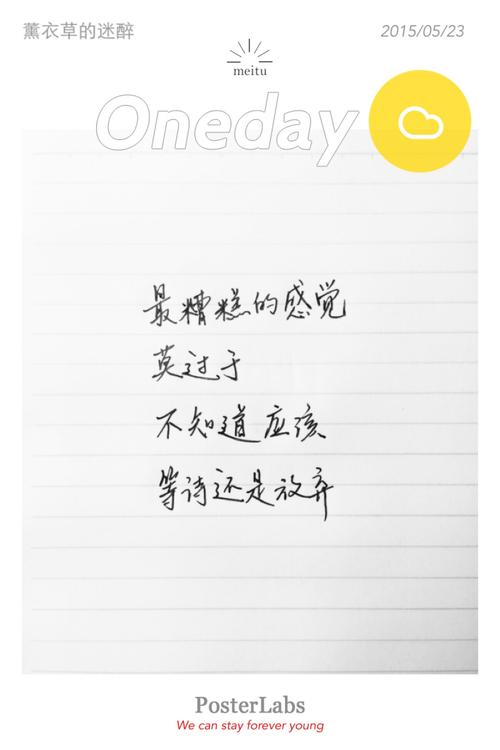 薰衣草的迷醉
2015/05/23
meitu
Oneday
最糟糕的感觉
莫过于
不知道应该
等待还是放弃
PosterLabs
We can stay forever young